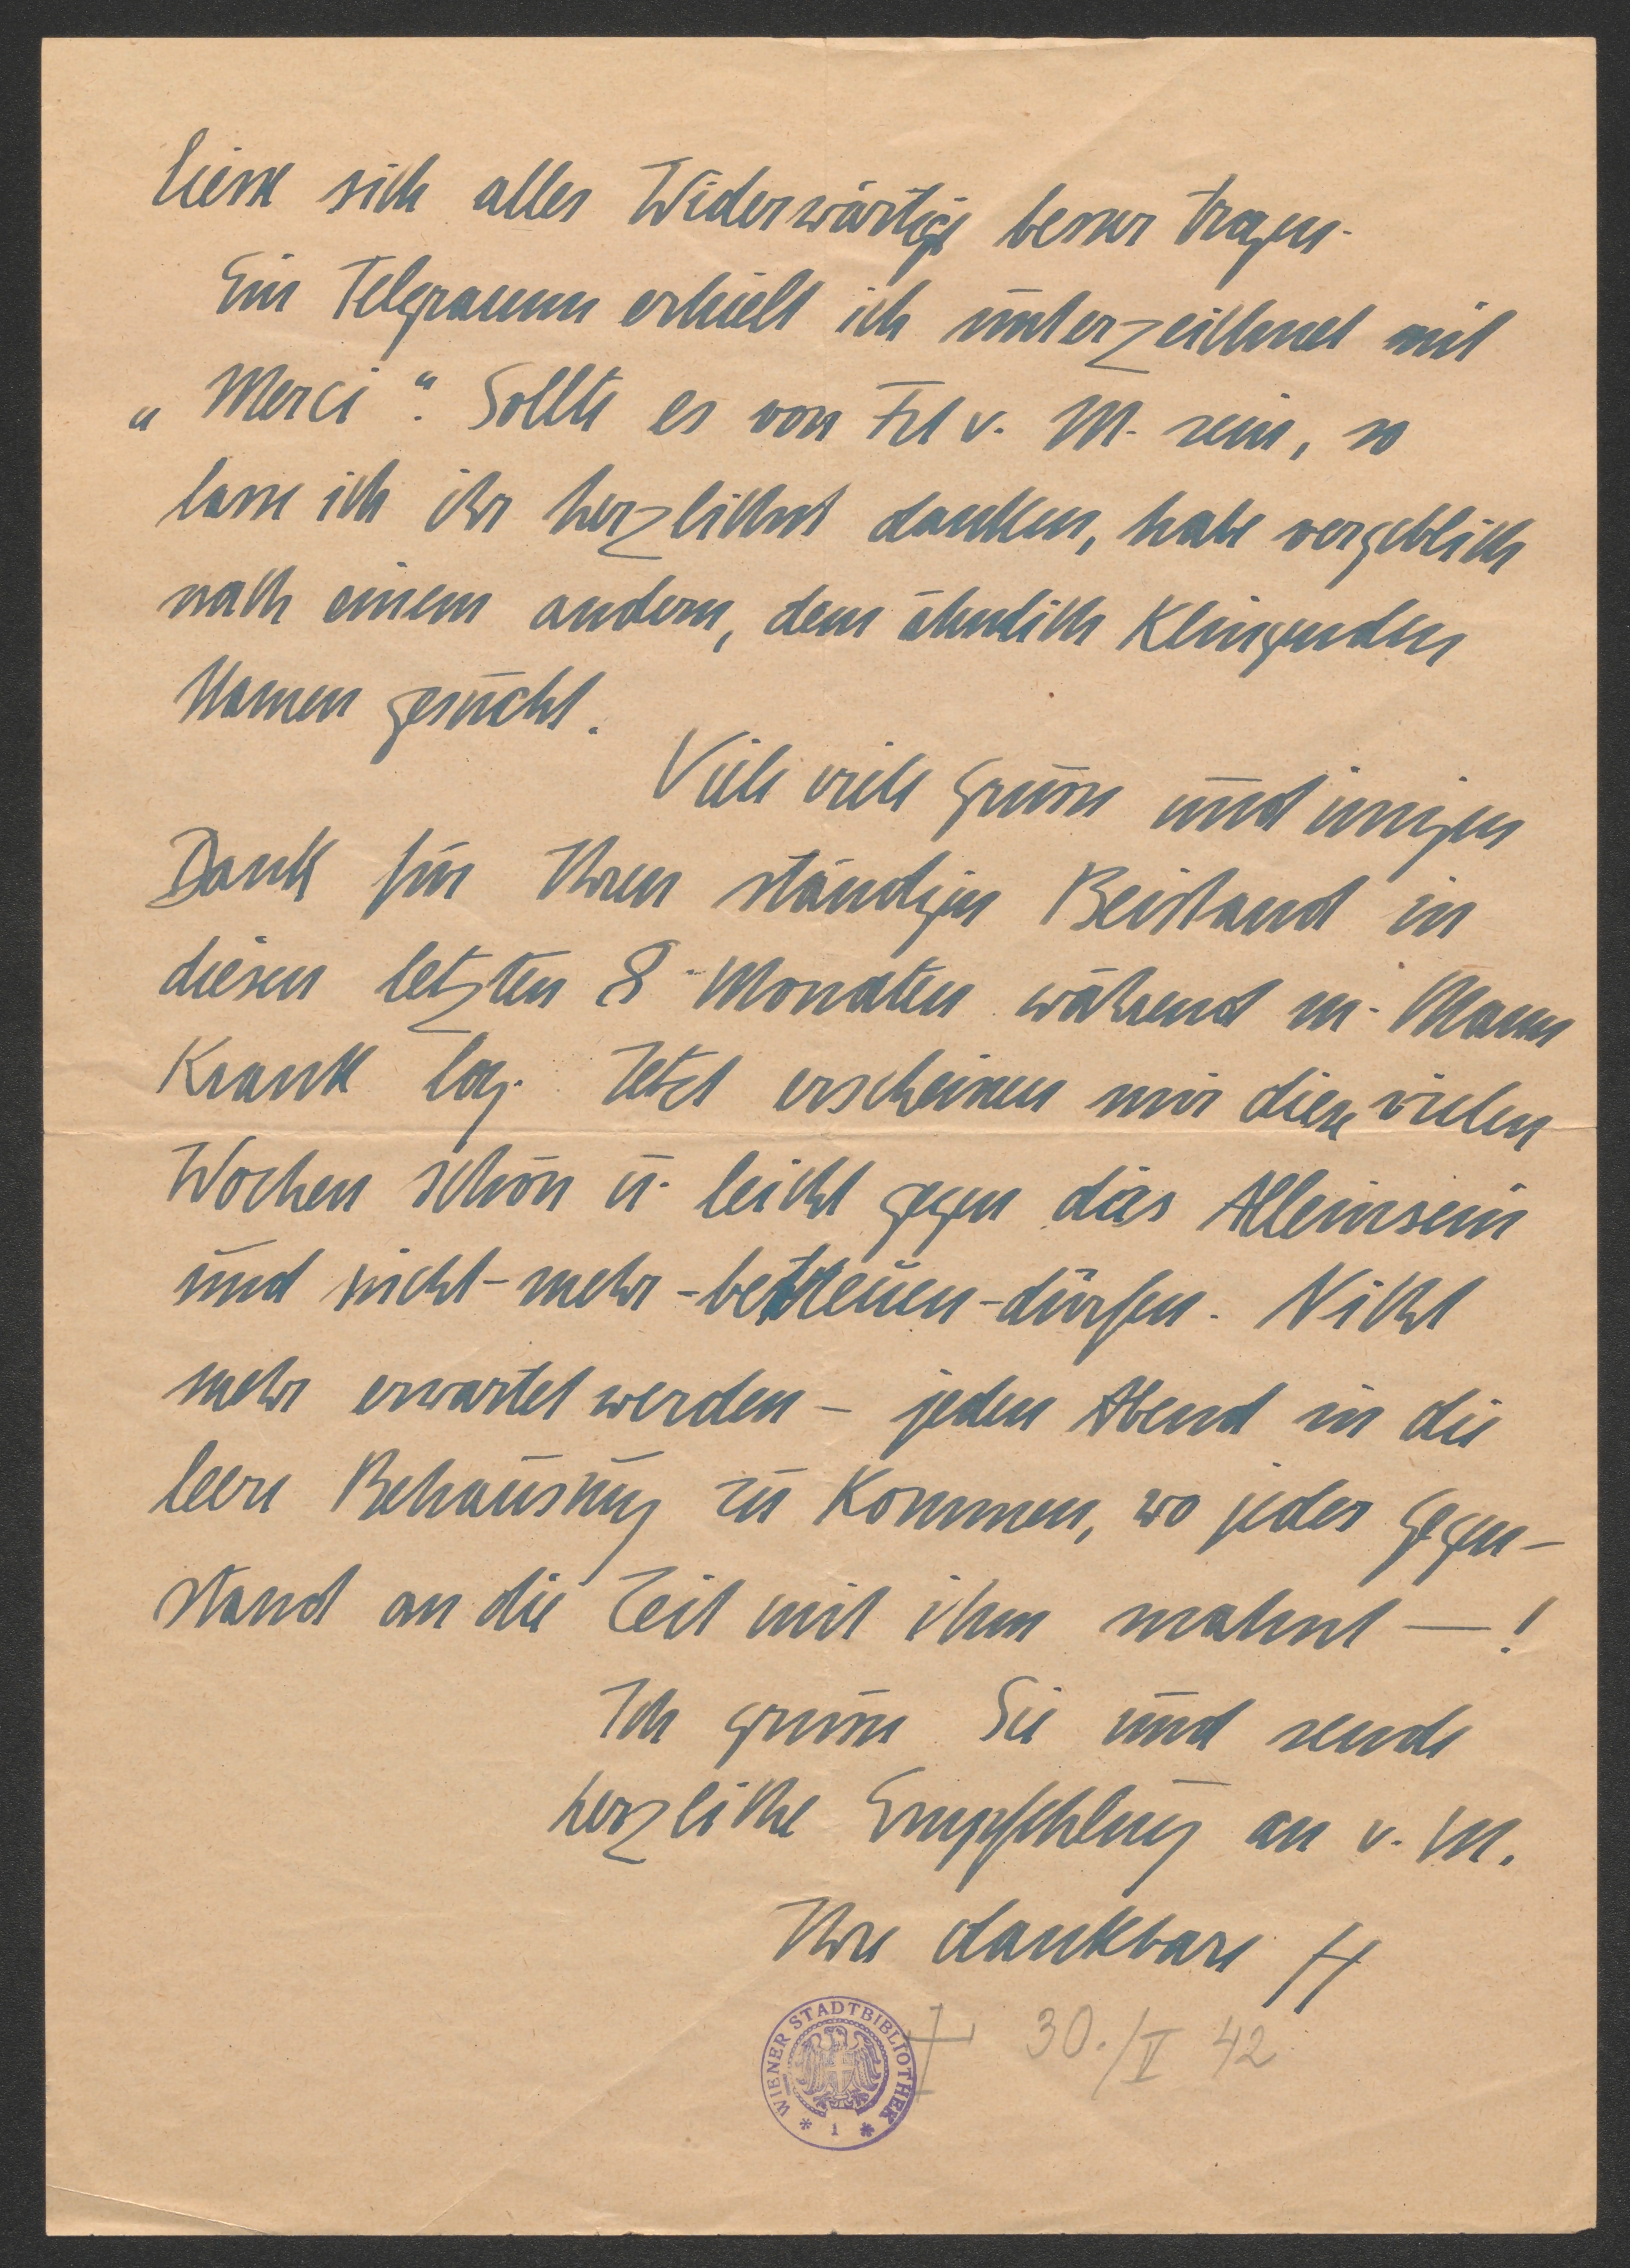 liesse sich alles Widerwärtige besser tragen.
Ein Telegramm erhielt ich unterzeichnet mit
„Merci". Sollte es von Frl v. M. sein, so
lasse ich ihr herzlichst danken, habe vergeblich
nach einem andern, dem ähnlich klingenden
Namen gesucht.
Viele viele Grüsse und innigen
Dank für Ihren ständigen Beistand in
diesen letzten 8 Monaten während m. Mann
krank lag. Jetzt erscheinen mir diese vielen
Wochen schön u. leicht gegen das Alleinsein
und nicht-mehr-betreuen-dürfen. Nicht
mehr erwartet werden – jeden Abend in die
leere Behausung zu kommen, wo jeder Gegen-
stand an die Zeit mit ihm mahnt —!
Ich grüsse Sie und sende
herzliche Empfehlung an v. M.
Ihre dankbare H
† 30./V 42
WIENER STADTBIBLIOTHEK * 1 *